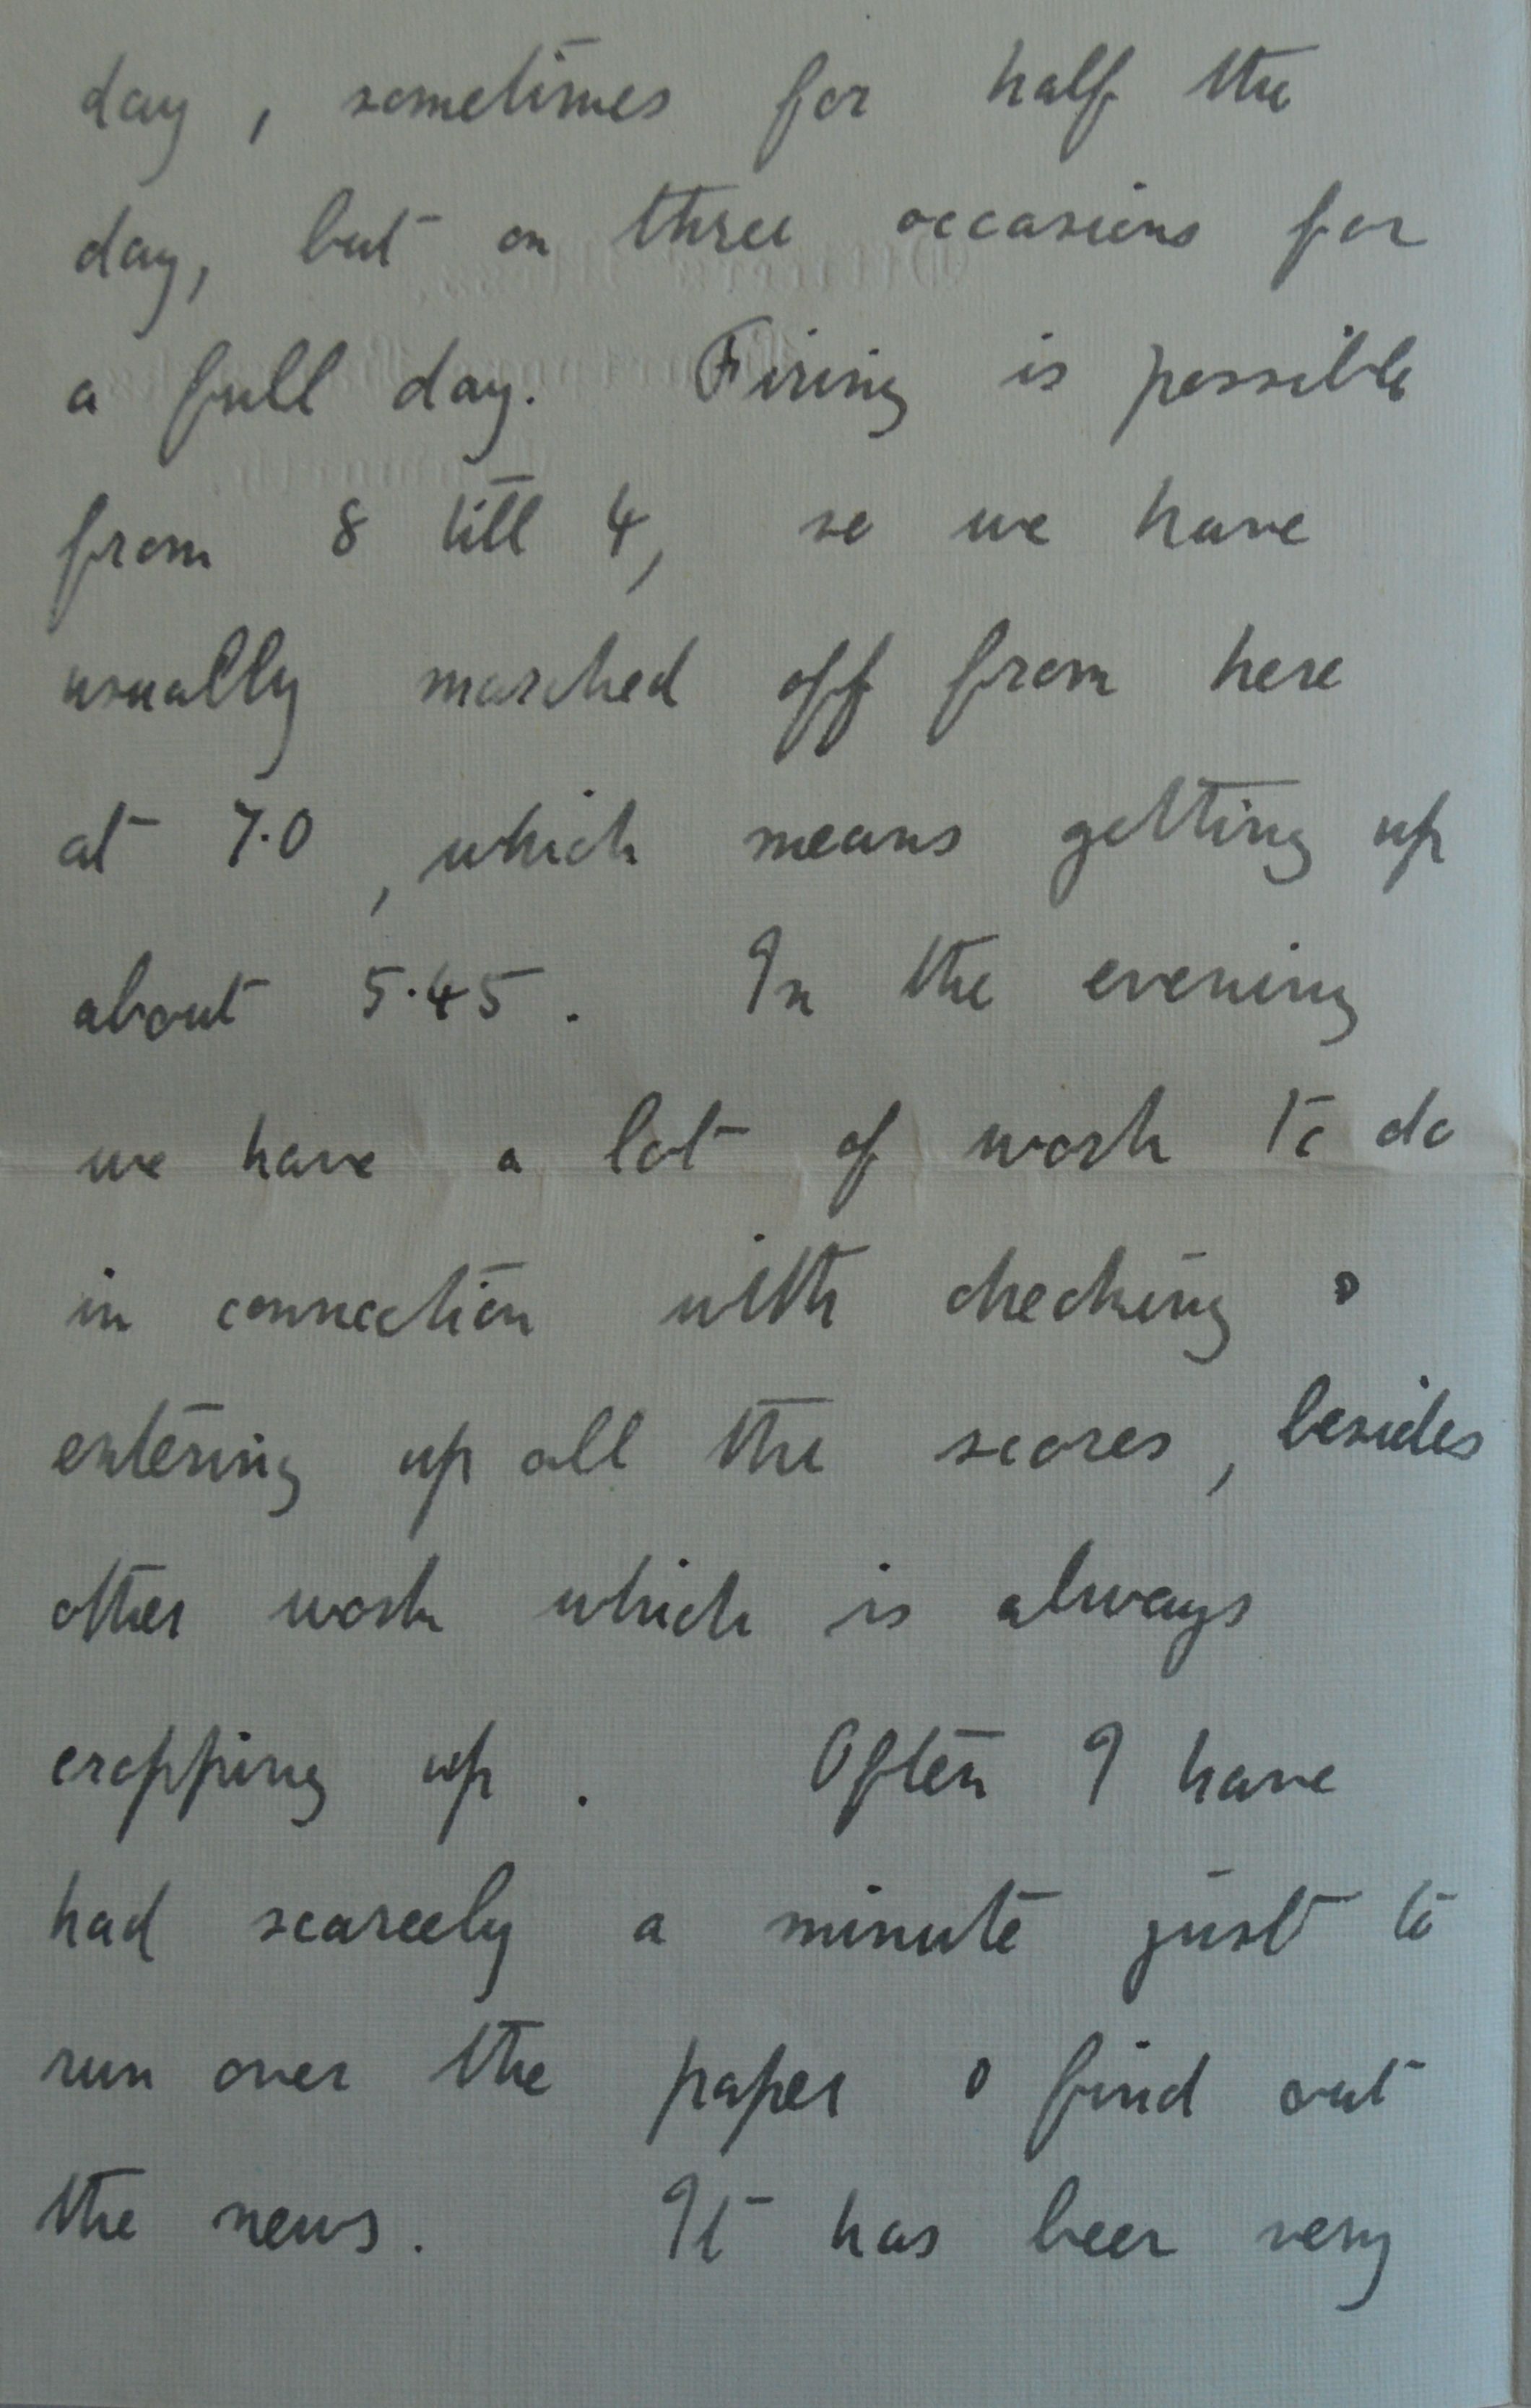 day, sometimes for half the
day, but on three occasions for
a full day. Firing is possible
from 8 till 4, so we have
usually marched off from here
at 7.0, which means getting up
about 5.45. In the evening
we have a lot of work to do
in connection with checking &
entering up all the scores, besides
other work which is always
cropping up. Often I have
had scarcely a minute just to
run over the paper & find out
the news. It has been very